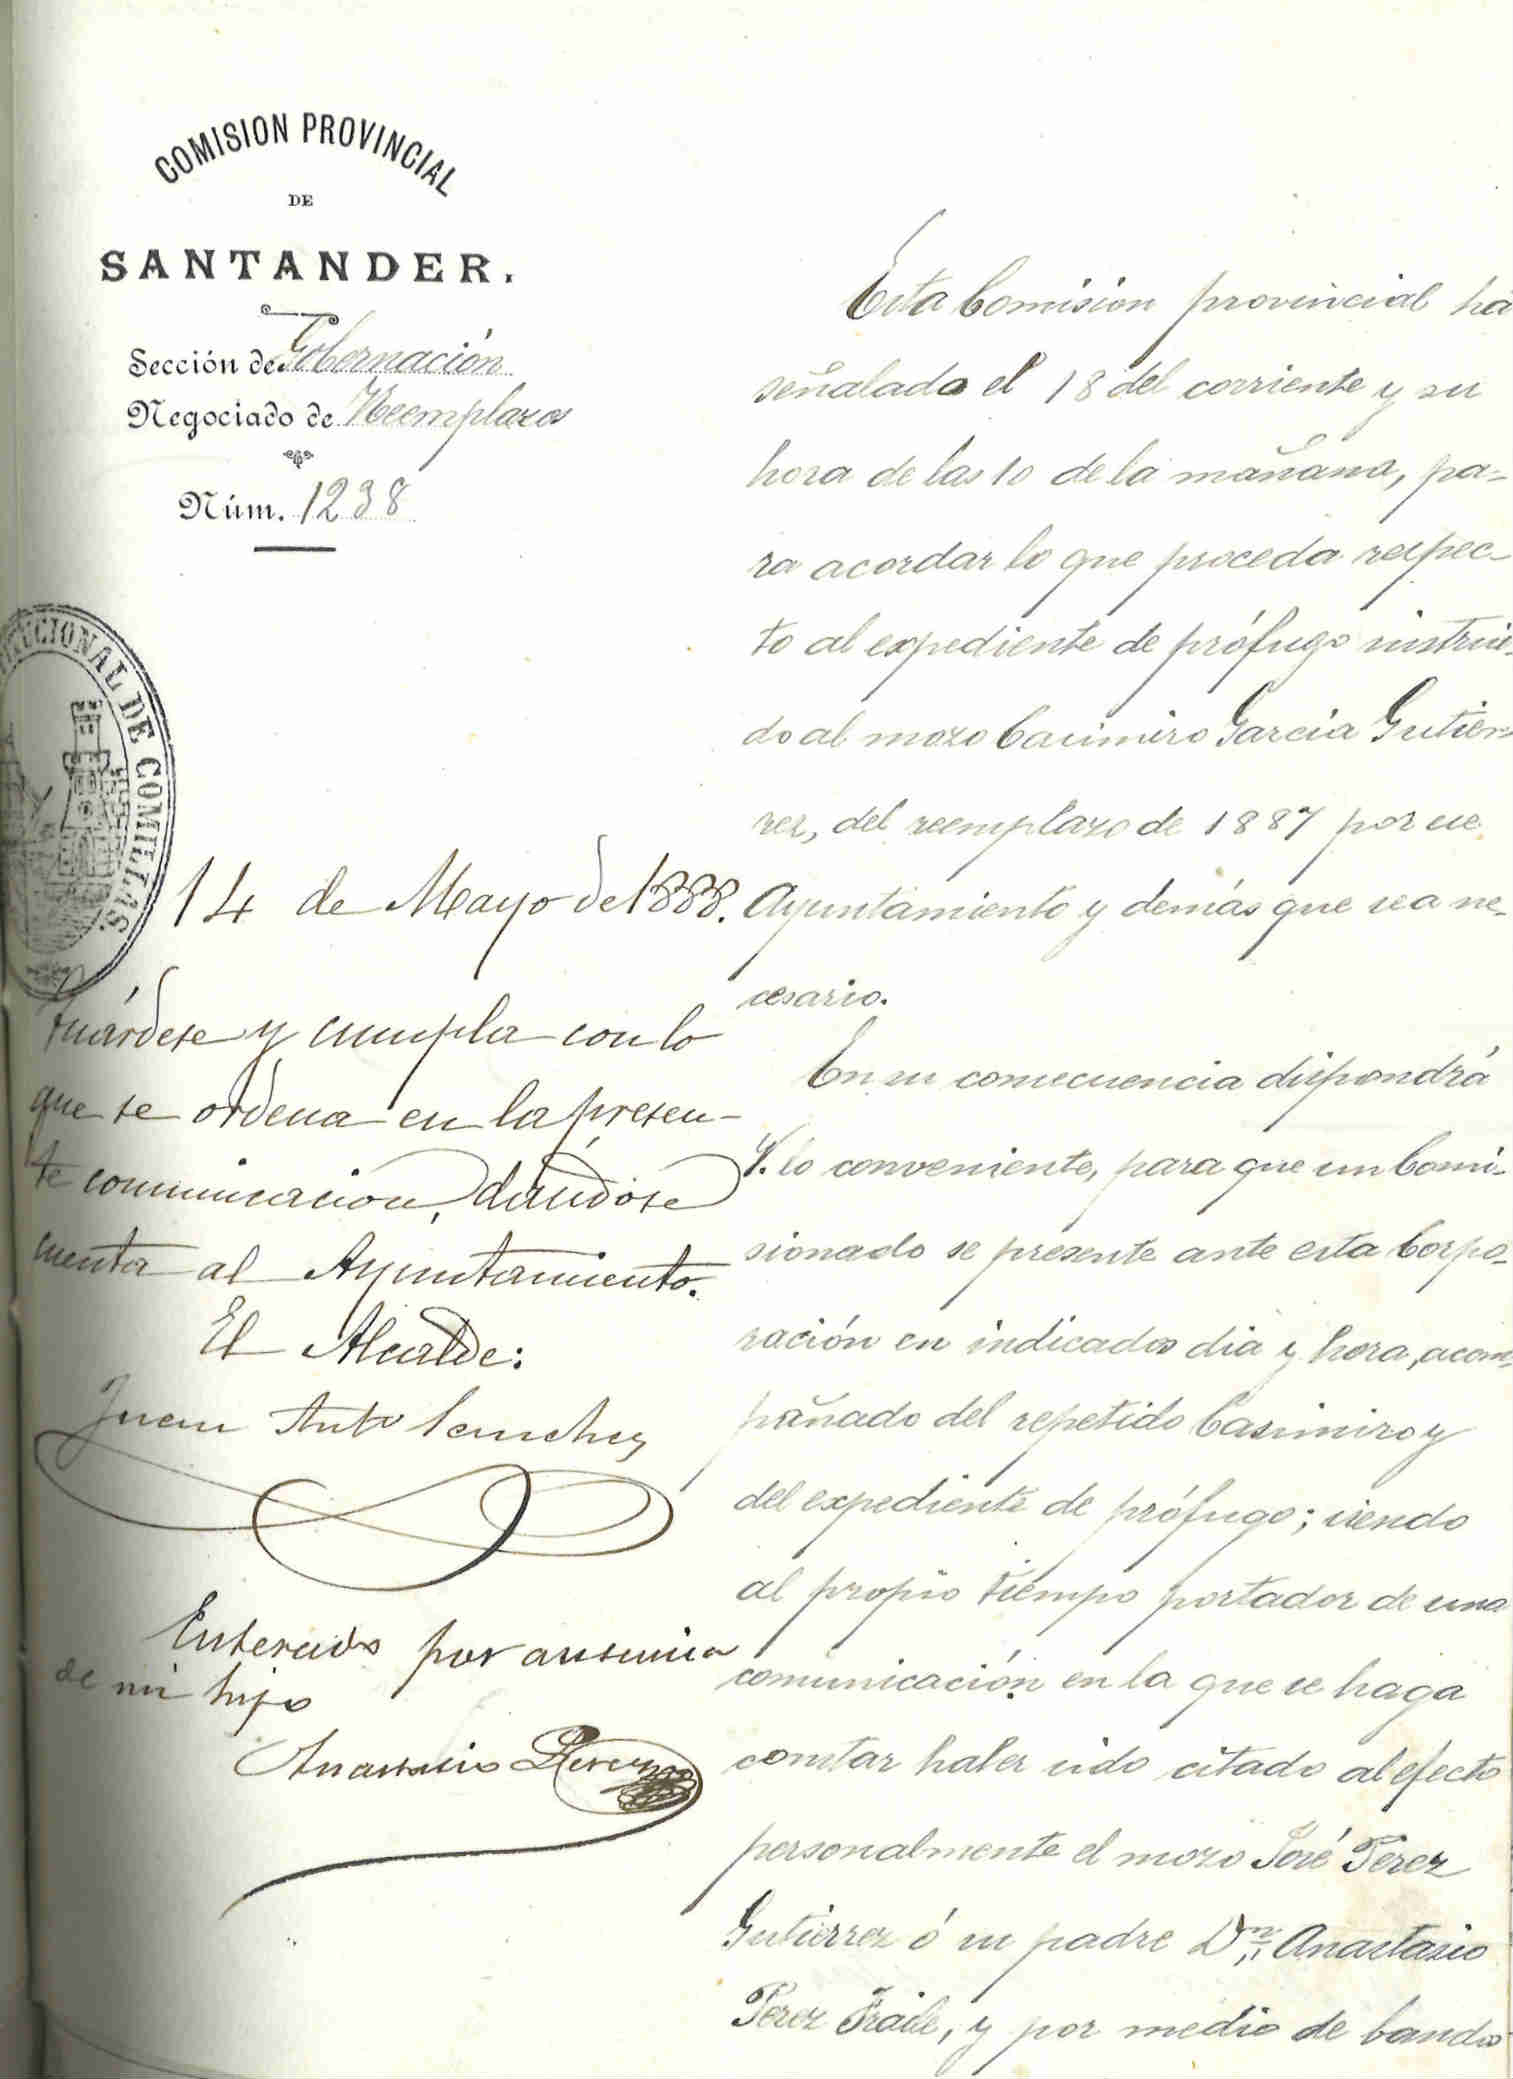 COMISION PROVINCIAL
DE
SANTANDER.
Sección de Gobernación
Negociado de Reemplazos
Núm. 1238
TUCIONAL DE COMILLAS.
14 de Mayo de 1888.
Guárdese y cumpla con lo
que se ordena en la presen-
te comunicación, dándose
cuenta al Ayuntamiento.
El Alcalde:
Juan Anto Sanchez
Enterado por ausencia
de mi hijo
Anastasio Perez
Esta Comision provincial ha
señalado el 18 del corriente y su
hora de las 10 de la mañana, pa-
ra acordar lo que proceda respec-
to al expediente de prófugo instrui-
do al mozo Casimiro García Gutier-
rez, del reemplazo de 1887 por ese
Ayuntamiento y demás que sea ne-
cesario.
En su consecuencia dispondrá
V. lo conveniente, para que un Comi-
sionado se presente ante esta Corpo-
ración en indicados dia y hora, acom-
pañado del repetido Casimiro y
del expediente de prófugo; siendo
al propio tiempo portador de una
comunicación en la que se haga
constar haber sido citado al efecto
personalmente el mozo José Perez
Gutierrez ó su padre Dn Anastasio
Perez Fraile, y por medio de bando